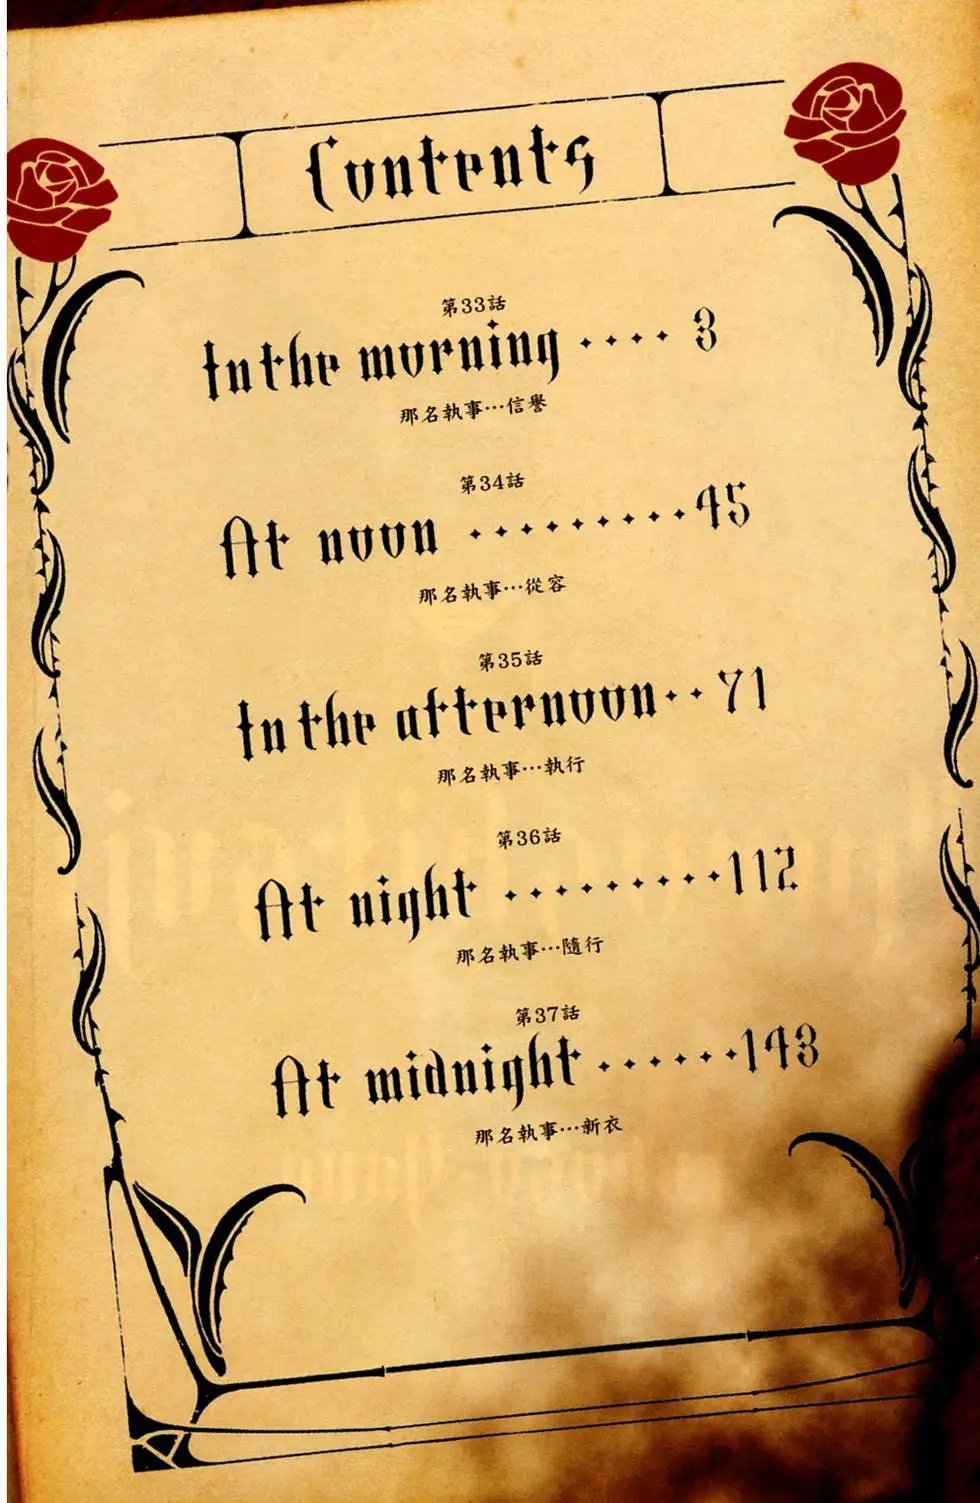 Contents
第33話
In the morning ···· 3
那名執事…信譽
第34話
At noon ········· 45
那名執事…從容
第35話
In the afternoon ·· 71
那名執事…執行
第36話
At night ········· 112
那名執事…隨行
第37話
At midnight ······ 143
那名執事…新衣